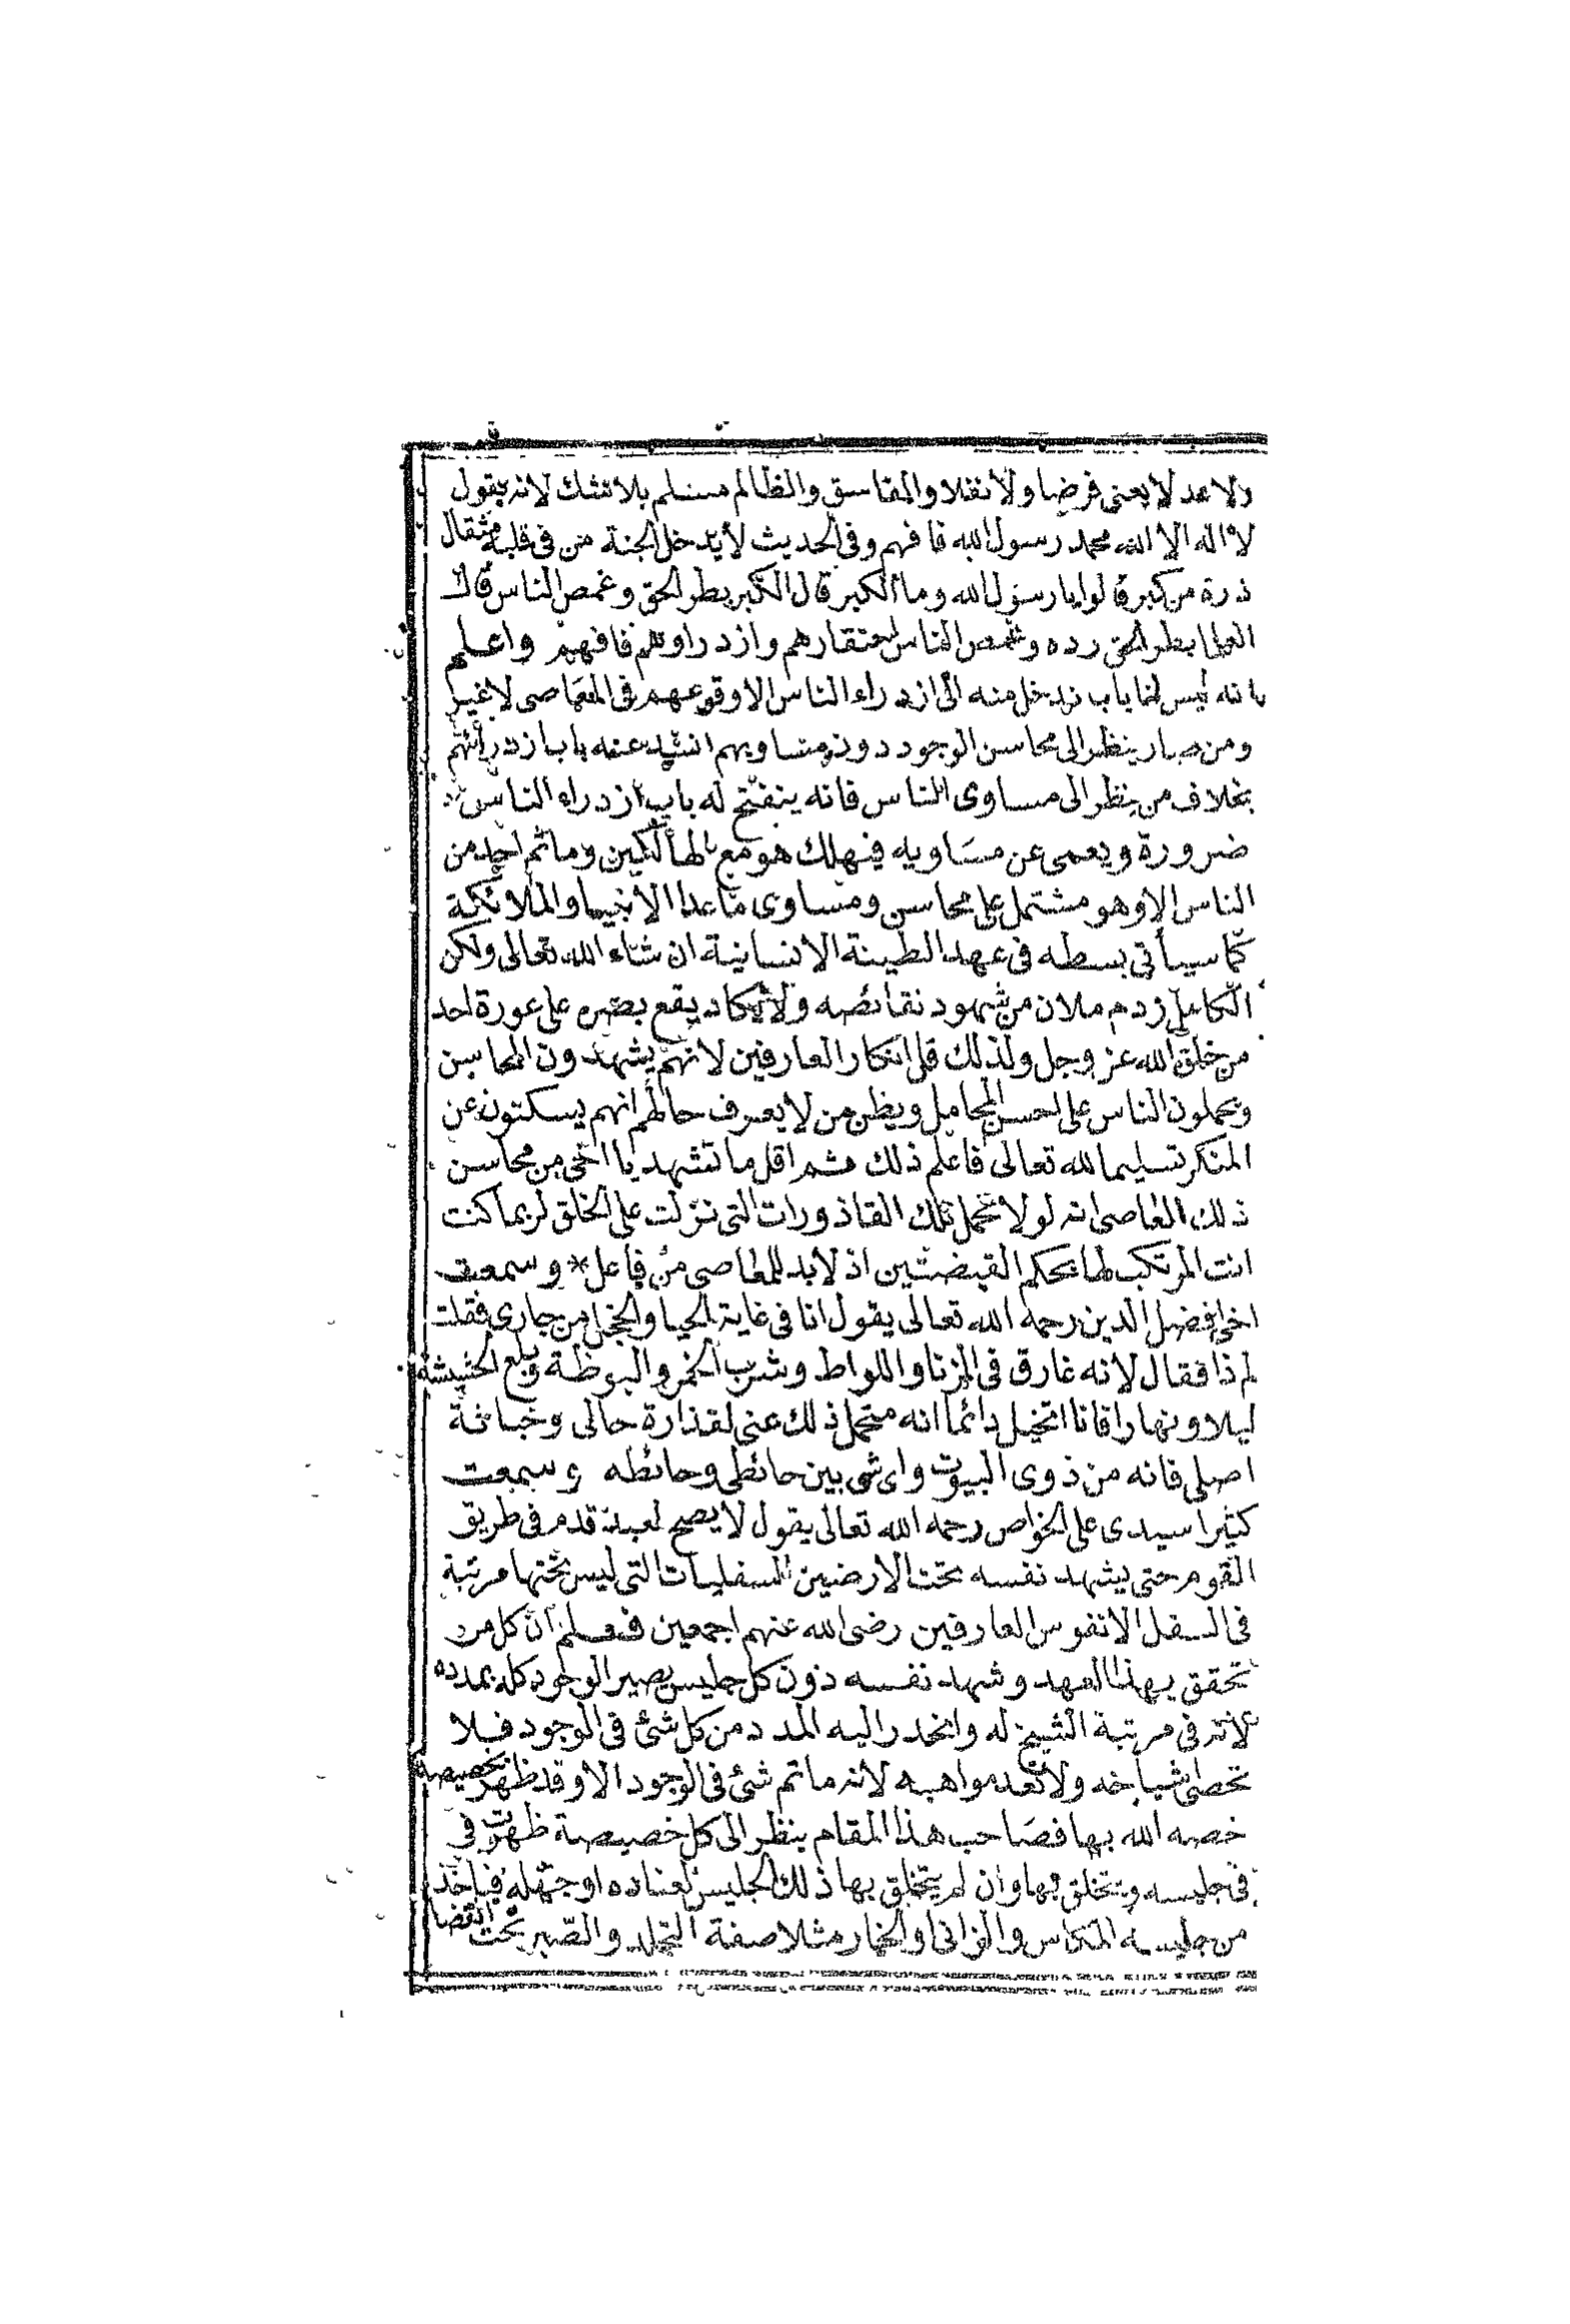 ولا عدلا يعنى فرضا ولا نفلا والفاسق والظالم مسلم بلا شك لانه يقول
لا اله الا الله محمد رسول الله فافهم وفى الحديث لا يدخل الجنة من فى قلبه مثقال
ذرة من كبر قالوا يا رسول الله وما الكبر قال الكبر بطر الحق وغمص الناس قال
العلما بطر الحق رده وغمص الناس احتقارهم وازدراوهم فافهم واعلم
يا انه ليس لنا باب ندخل منه الى ازدراء الناس الا وقوعهم فى المعاصى لا غير
ومن صار ينظر الى محاسن الوجود دون مساويهم انسد عنه باب ازدرائهم
بخلاف من ينظر الى مساوى الناس فانه ينفتح له باب ازدراء الناس
ضرورة ويعمى عن مساويه فيهلك هو مع الهالكين وما ثم احد من
الناس الا وهو مشتمل على محاسن ومساوى ما عدا الانبيا والملائكة
كما سيأتى بسطه فى عهد الطينة الانسانية ان شاء الله تعالى ولكن
الكامل زدم ملان من شهود نقائصه ولا يكاد يقع بصره على عورة احد
من خلق الله عز وجل ولذلك قل انكار العارفين لانهم يشهدون المحاسن
ويحملون الناس على احسن المحامل ويظن من لا يعرف حالهم انهم يسكتون عن
المنكر تسليما لله تعالى فاعلم ذلك ثم اقل ما تشهد يا اخى من محاسن
ذلك العاصى انه لولا تحمل تلك القاذورات التى نزلت على الخلق لربما كنت
انت المرتكب لها بحكم القبضتين اذ لا بد للمعاصى من فاعل * وسمعت
اخى افضل الدين رحمه الله تعالى يقول انا فى غاية الحيا والخجل من جارى فقلت
لم ذا فقال لانه غارق فى الزنا واللواط وشرب الخمر والبوظة وبلع الحشيشة
ليلا ونهارا فانا اتخيل دائما انه متحمل ذلك عنى لقذارة حالى وخباثة
اصلى فانه من ذوى البيوت واى شى بين حائطى وحائطه وسمعت
كثيرا سيدى على الخواص رحمه الله تعالى يقول لا يصح لعبد قدم فى طريق
القوم حتى يشهد نفسه تحت الارضين السفليات التى ليس تحتها مرتبة
فى السفل الا نفوس العارفين رضى الله عنهم اجمعين فعلم ان كل من
تحقق بهذا العهد وشهد نفسه دون كل جليس يصير الوجود كله يمده
لانه فى مرتبة الشيخ له وانحدر اليه المدد من كل شئ فى الوجود فلا
تحصى شياخه ولا تعد مواهبه لانه ما ثم شئ فى الوجود الا وقد ظهر بخصيصة
خصه الله بها فصاحب هذا المقام ينظر الى كل خصيصة ظهرت فى
فى جليسه ويتخلق بها وان لم يتخلق بها ذلك الجليس لعناده او جهله فياخذ
من جليسه المكاس والزانى والخمار مثلا صفة التجلد والصبر تحت القضا